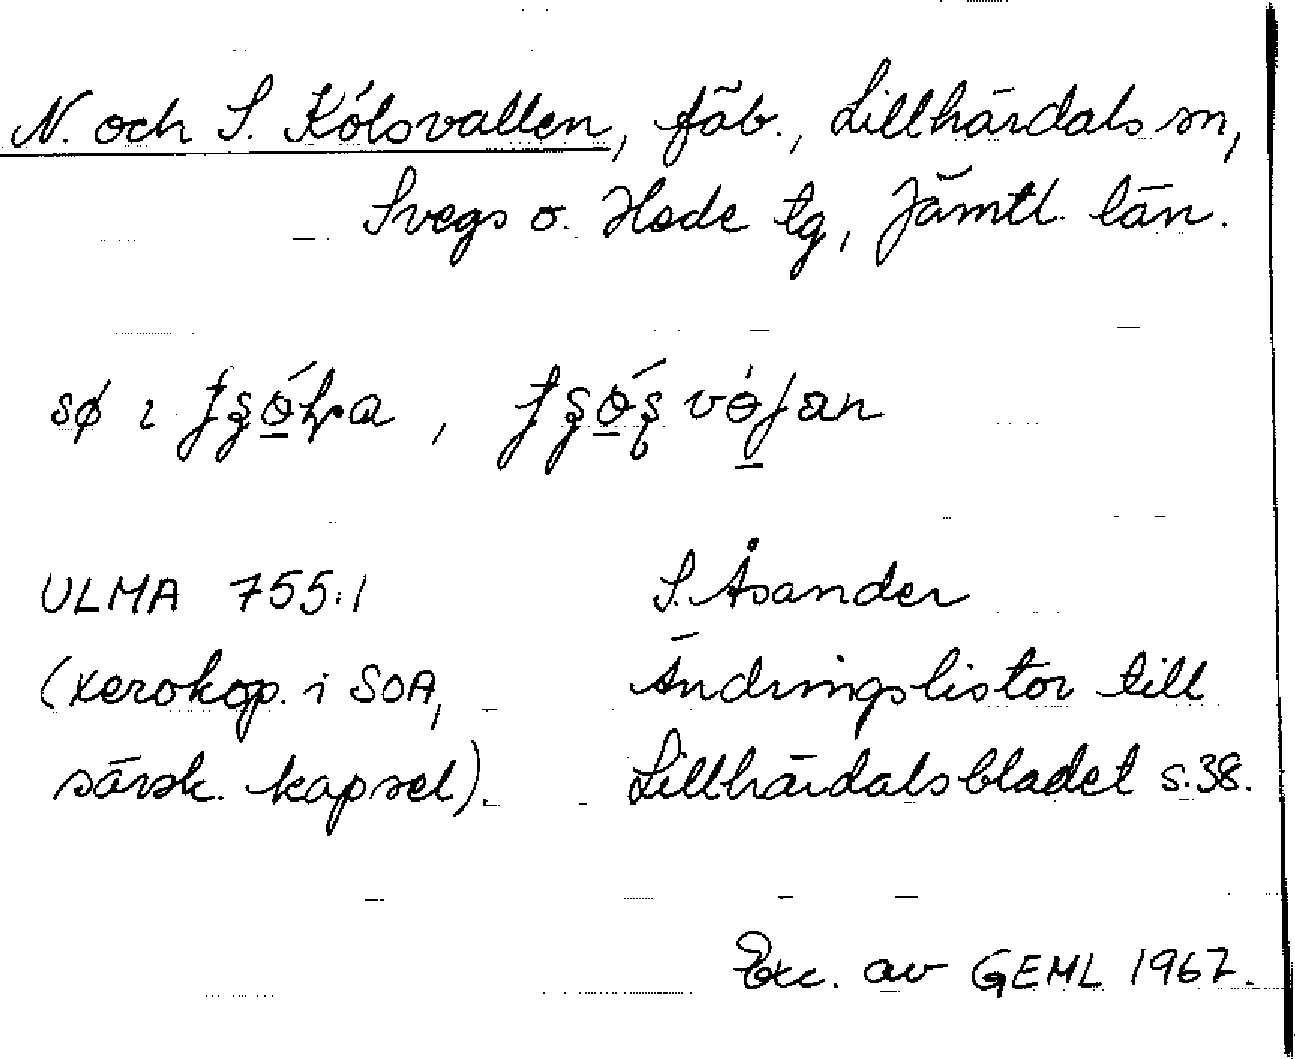 N. och S. Kólsvallen, fäb., Lillhärdals sn,
Svegs o. Hede tg, Jämtl. län.
sø i
ULMA 755:1
(xerokop. i SOA,
särsk. kapsel).
S. Åsander
Ändringslistor till
Lillhärdalsbladet s. 38.
Exc. av GEML 1967.